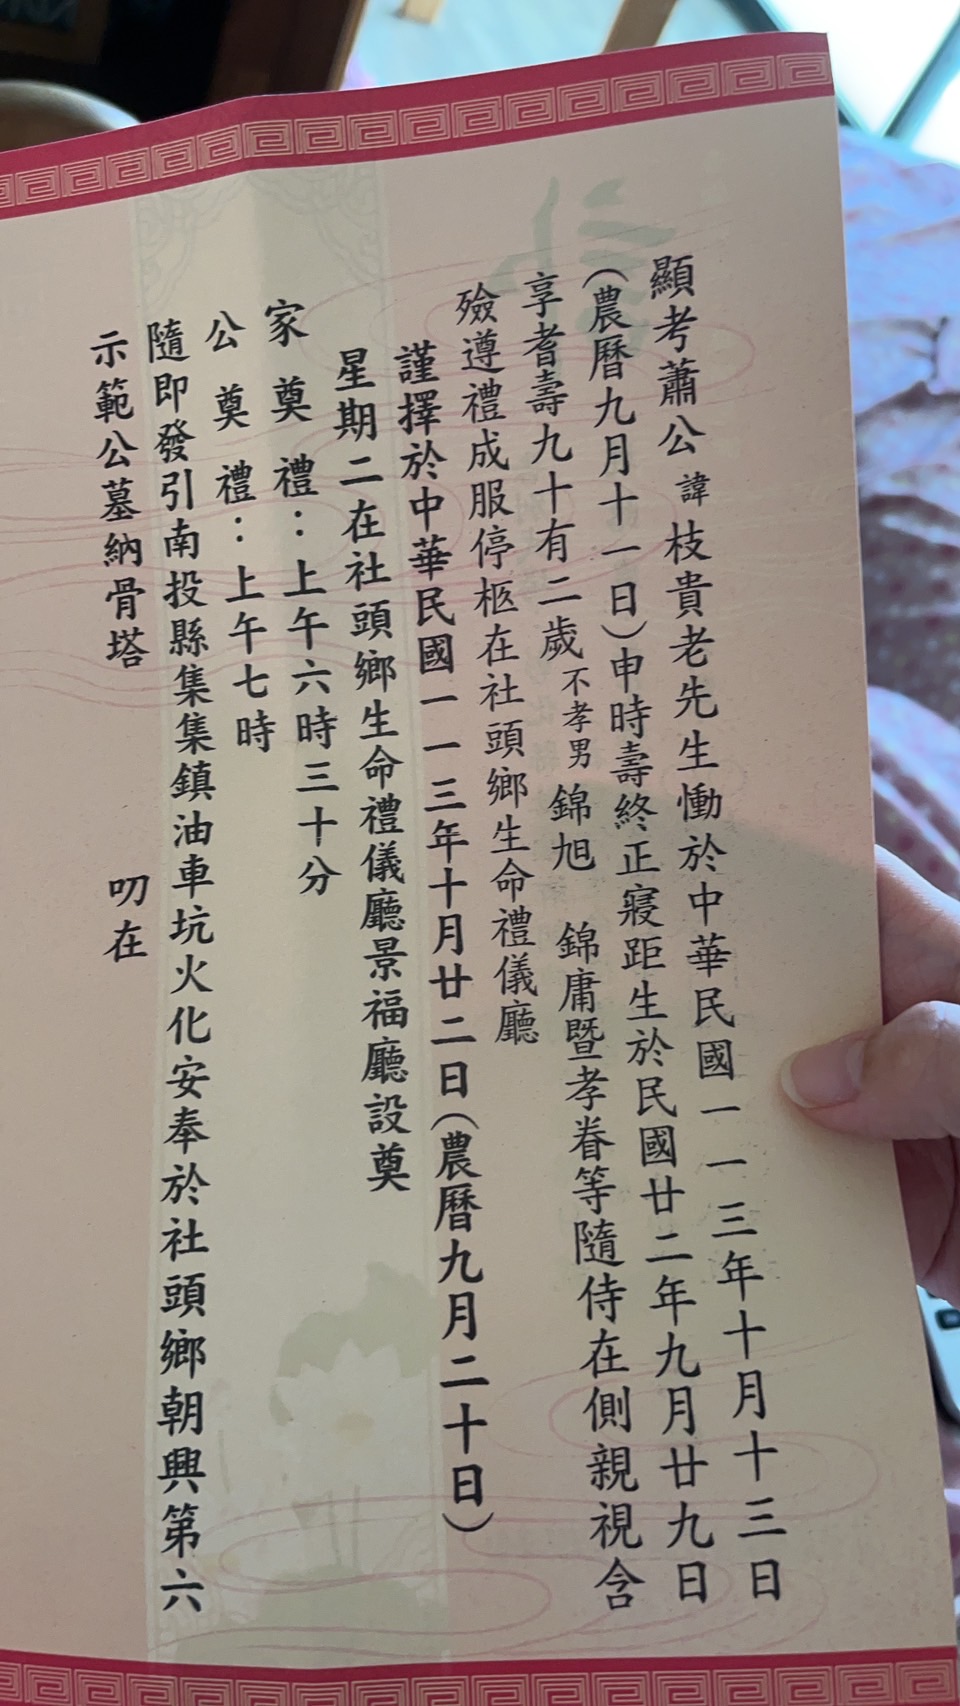 顯考蕭公諱枝貴老先生慟於中華民國一一三年十月十三日
(農曆九月十一日)申時壽終正寢距生於民國廿二年九月廿九日
享耆壽九十有二歲不孝男錦旭 錦庸暨孝眷等隨侍在側親視含
殮遵禮成服停柩在社頭鄉生命禮儀廳
謹擇於中華民國一一三年十月廿二日(農曆九月二十日)
星期二在社頭鄉生命禮儀廳景福廳設奠
家奠禮：上午六時三十分
公奠禮：上午七時
隨即發引南投縣集集鎮油車坑火化安奉於社頭鄉朝興第六
示範公墓納骨塔 叨在